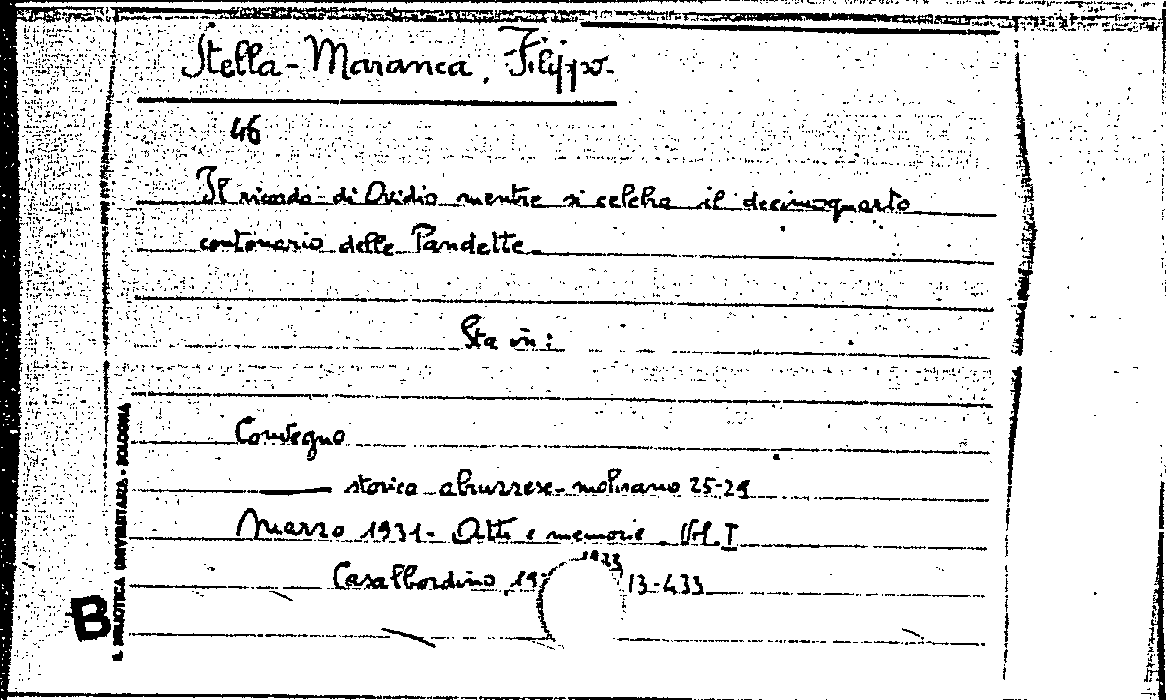 Stella-Maranca, Filippo.
46
Il ricordo di Ovidio mentre si celebra il decimoquarto
centenario delle Pandette.
Sta in:
Convegno
storico abruzzese-molisano 25-29
Marzo 1931- Atti e memorie. Vol. I
Casalbordino, 19 1933 13-433
B
R. BIBLIOTECA UNIVERSITARIA - BOLOGNA